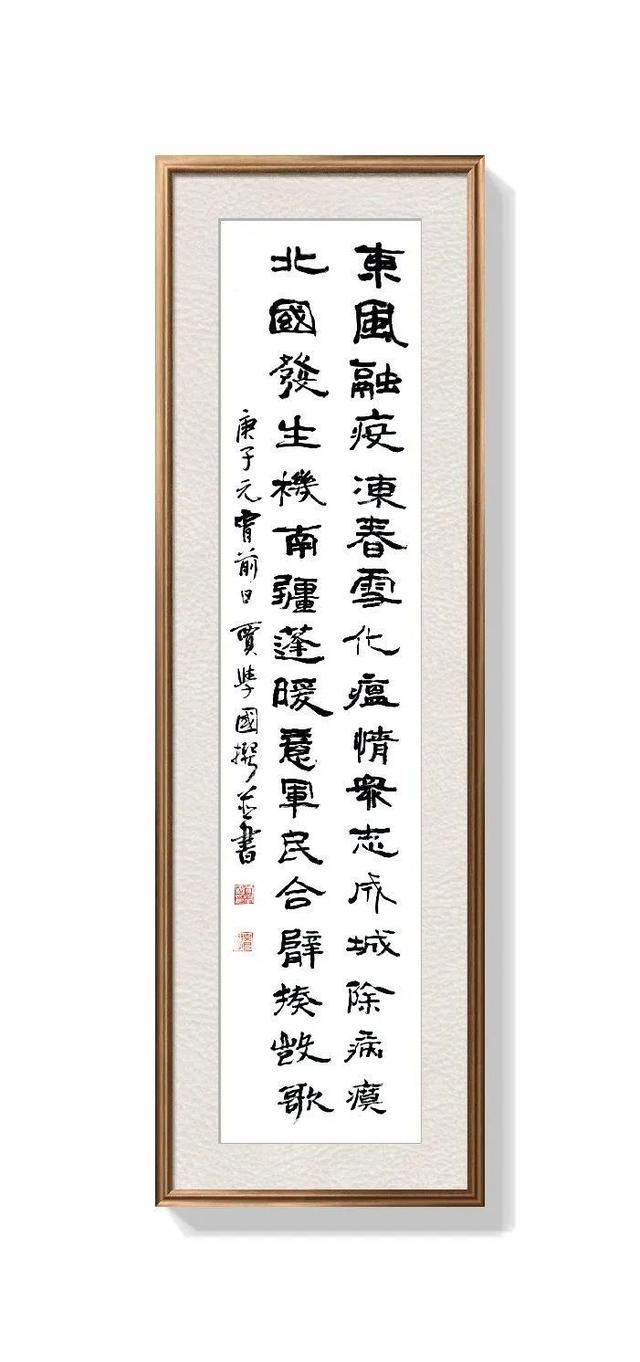 東風融疫凍春雪化瘟情衆志成城除病瘼
北國發生機南疆蓬暖意軍民合辟揍敳歌
庚子元宵前日賈學國撰並書